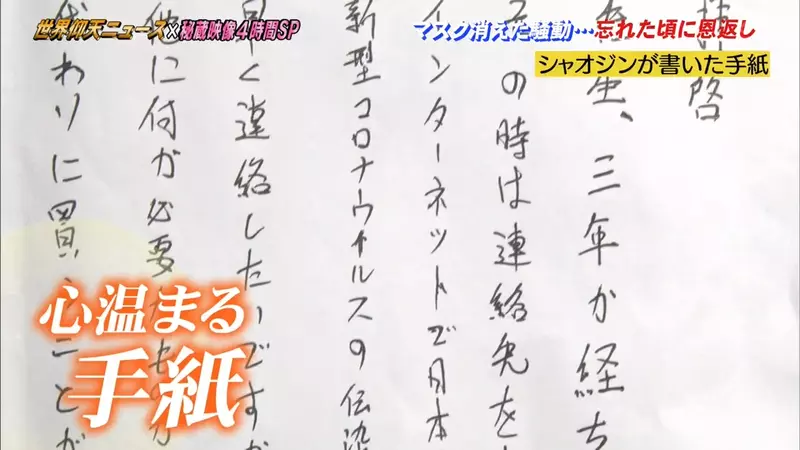 世界仰天ニュース×秘蔵映像4時間SP
マスク消えた騒動…忘れた頃に恩返し
シャオジンが書いた手紙
啓
生、三年が経ち
の時は連絡先を
インターネットで日本
新型コロナウイルスの伝染
早く連絡したいですが
他に付が必要
わりに買うことが
心温まる
手紙